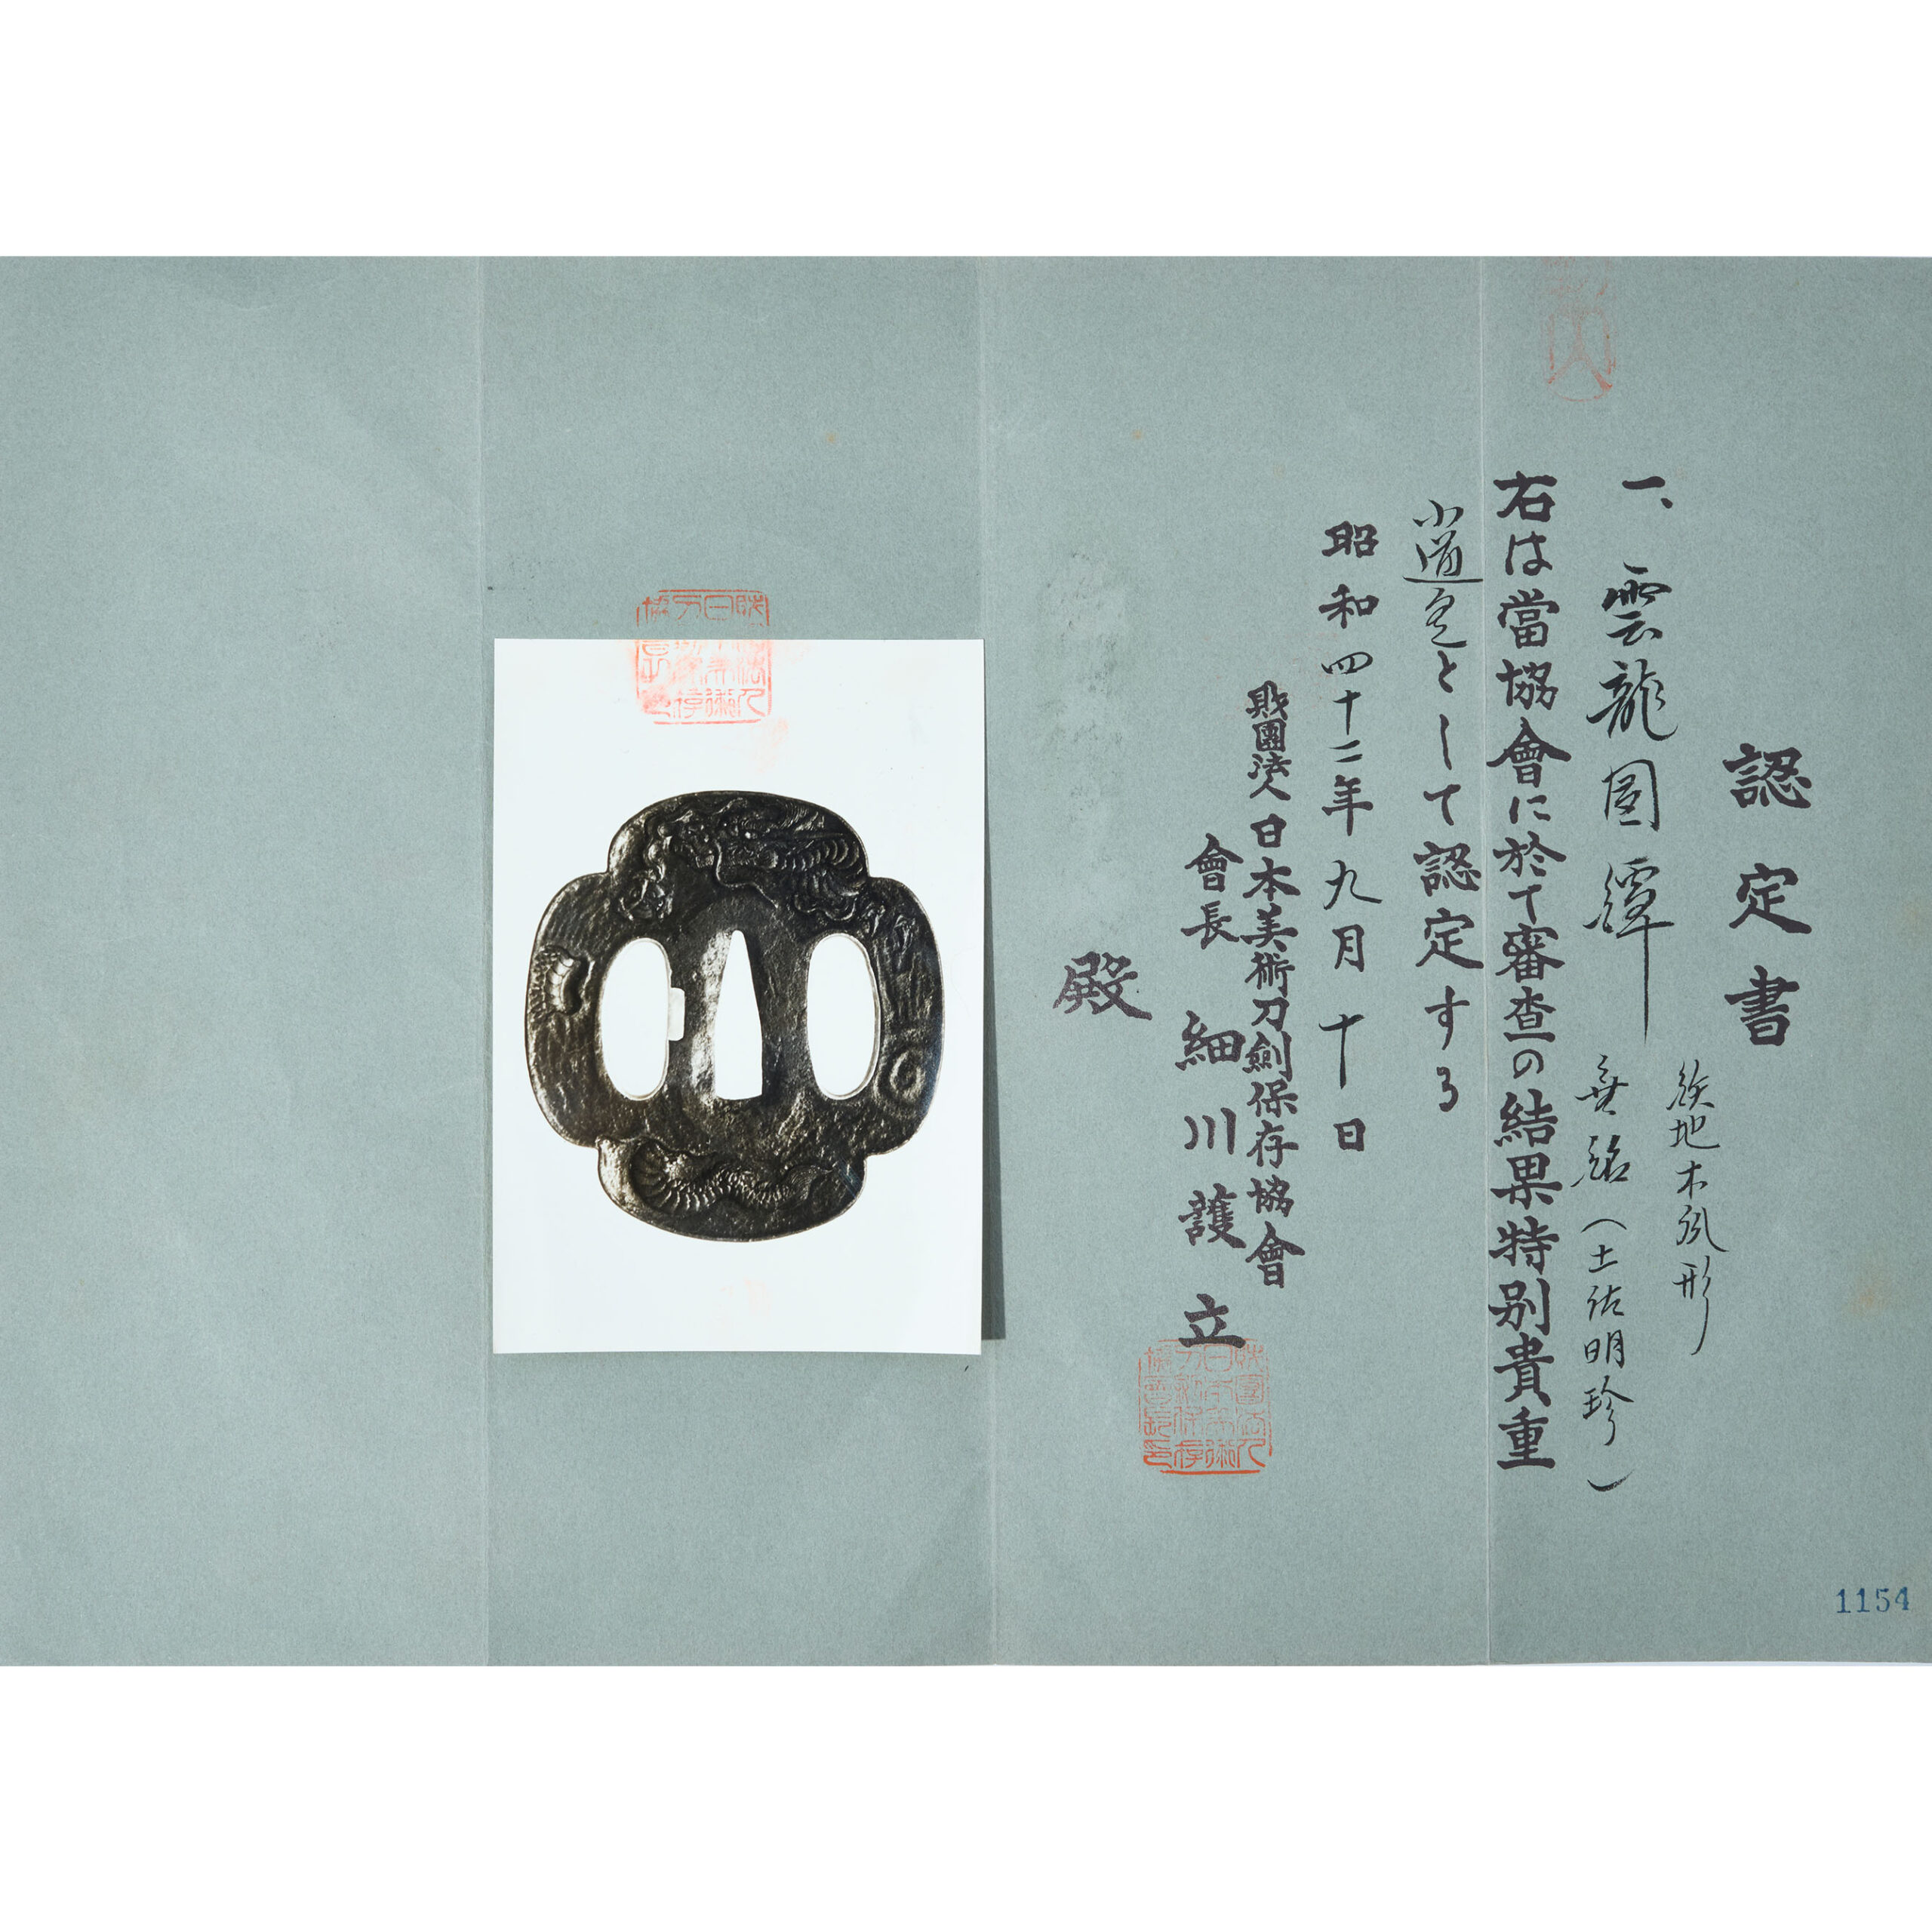 認定書
一、雲龍図鐔
鉄地木瓜形
無銘（土佐明珍）
右は當協會に於て審査の結果特別貴重
小道具として認定する
昭和四十二年九月十日
財團法人日本美術刀劍保存協會
會長 細川護立
殿
1154